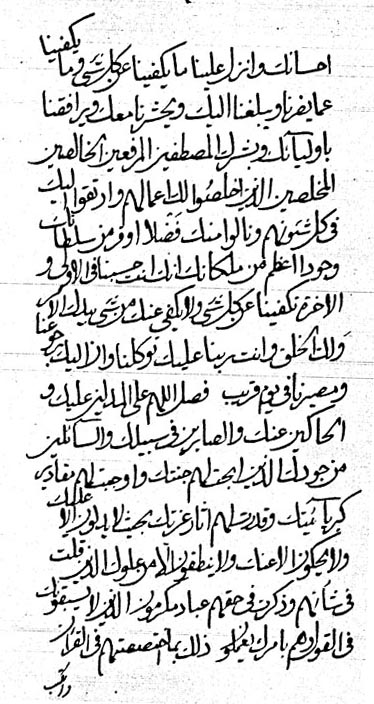 يكفينا
احسانك وانزل علينا ما يكفينا عن كل شئ وما
عما يضرنا ويبلغنا اليك ويحشرنا معك ويرافقنا
باوليائك وبشرك المصطفين المرفعين الخالصين
المخلصين الذين اخلصوا لك اعمالهم وارتقوا اليك
في كل شئونهم ونالوا منك فضلا اوفر من سلطانك
وجودا اعظم من ملكانك انك انت حسبنا في الاولى و
الاخرة تكفينا عن كل شئ ولا يكفي عنك من شئ بيدك الامر
ولك الخلق وانت ربنا عليك توكلنا وانا اليك رجوعنا
ومصيرنا في يوم قريب فصل اللهم على المدلين عليك و
الحاكين عنك والصابرين في سبيلك والسائلين
من جودك الذين ابحت لهم جنتك واوجبت لهم مقادير
كبريائيتك وقدرت لهم اثار عزتك بحيث لا يدلون الا عليك
ولا يحكون الا عنك ولا ينطقون الا من علوك الذين قلت
في شأنهم وذكرت في حقهم عباد مكرمون الذين لا يسبقونك
في القول وهم بامرك يعملون ذلك بما اختصصتهم في القران